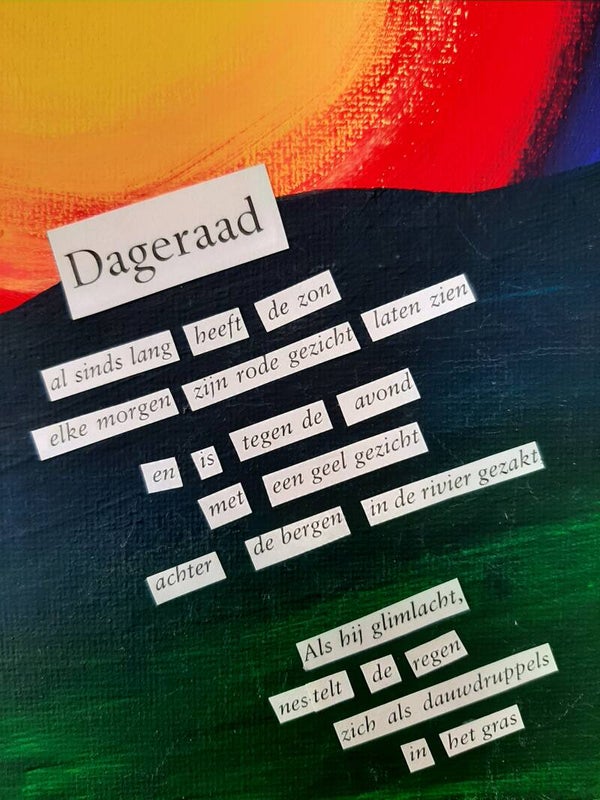 Dageraad
al sinds lang heeft de zon
elke morgen zijn rode gezicht laten zien
en is tegen de avond
met een geel gezicht
achter de bergen in de rivier gezakt
Als hij glimlacht,
nestelt de regen
zich als dauwdruppels
in het gras